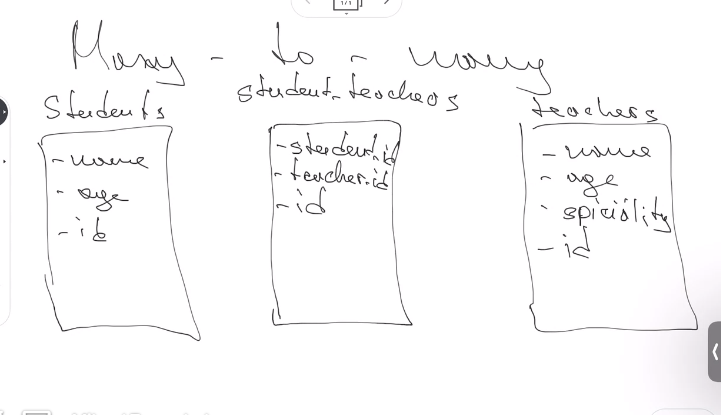 Many - to - many
Students
- name
- age
- id
student_teachers
- student.id
- teacher.id
- id
teachers
- name
- age
- spiciality
- id